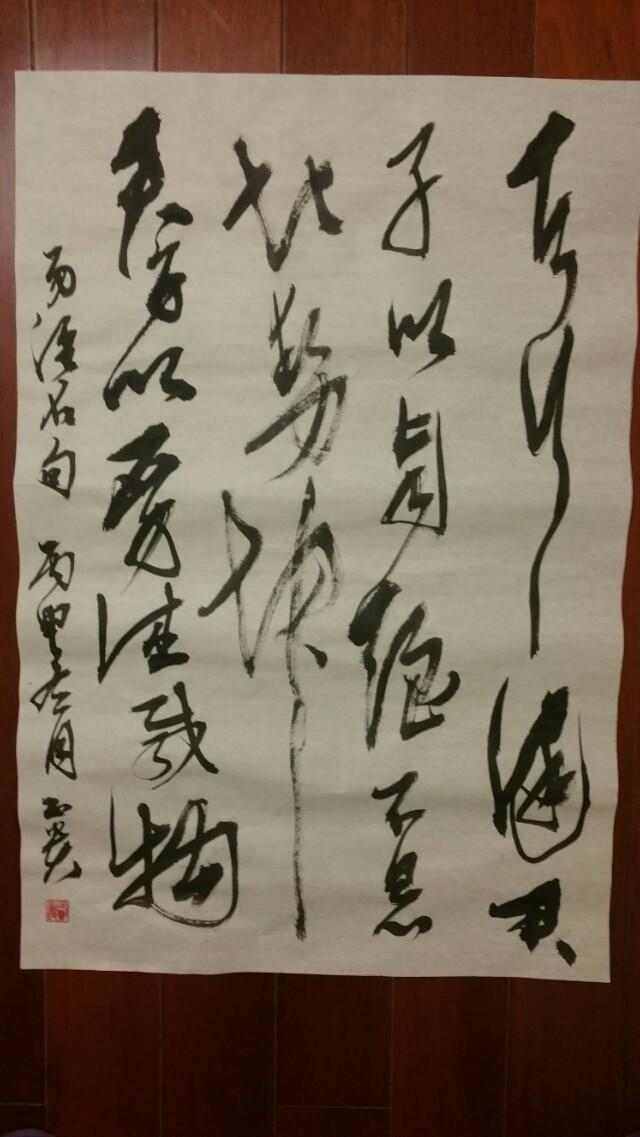 天行健君
子以自强不息
地势坤
君子以厚德载物
易经名句 丙 月